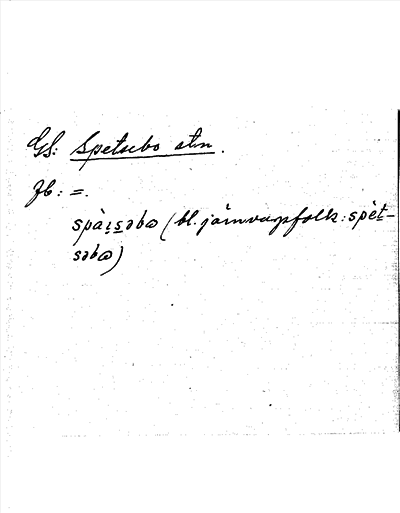 GS: Spetsebo stn.
Jb: =.
spàɪ̣s̱əbɷ (bl. järnvägsfolk: spèṯ-
səbɷ)